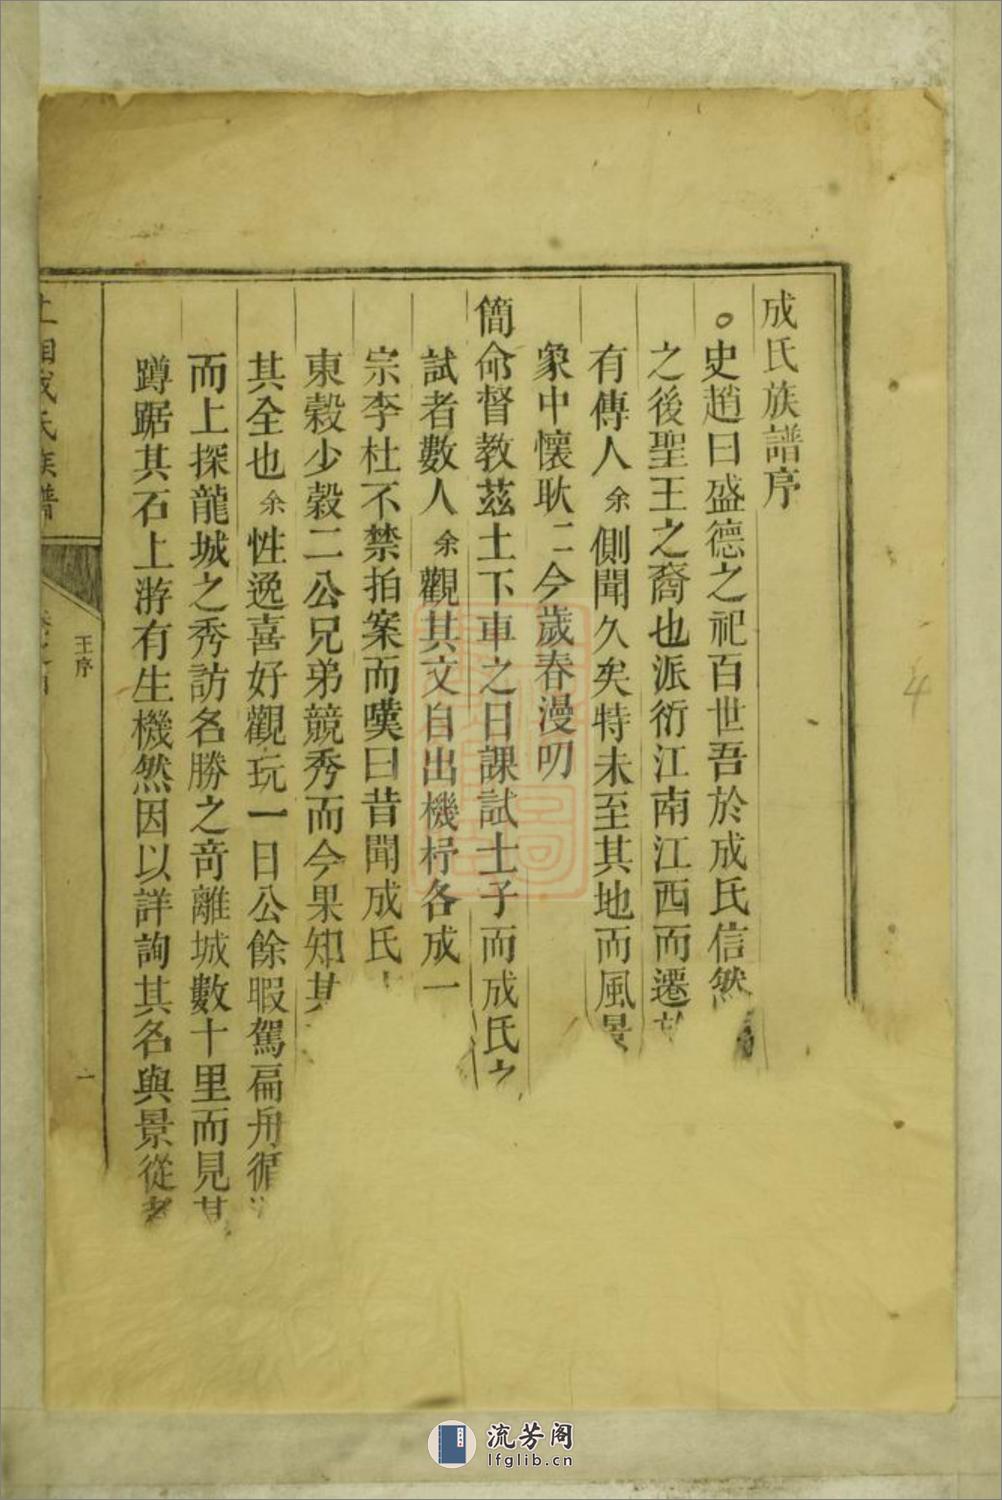 成氏族譜序
。史趙曰盛德之祀百世吾於成氏信然
之後聖王之裔也派衍江南江西而遷
有傳人余側聞久矣特未至其地而風景
象中懷耿〻今歲春漫叨
簡命督教茲土下車之日課試士子而成氏之
試者數人余觀其文自出機杼各成一
宗李杜不禁拍案而嘆曰昔聞成氏
東榖少榖二公兄弟競秀而今果知其
其全也余性逸喜好觀玩一日公餘暇駕扁舟循
而上探龍城之秀訪名勝之竒離城數十里而見其
蹲踞其石上游有生機然因以詳詢其名與景從者
上湘成氏族譜
王序
一
流芳阁
lfglib.cn
4